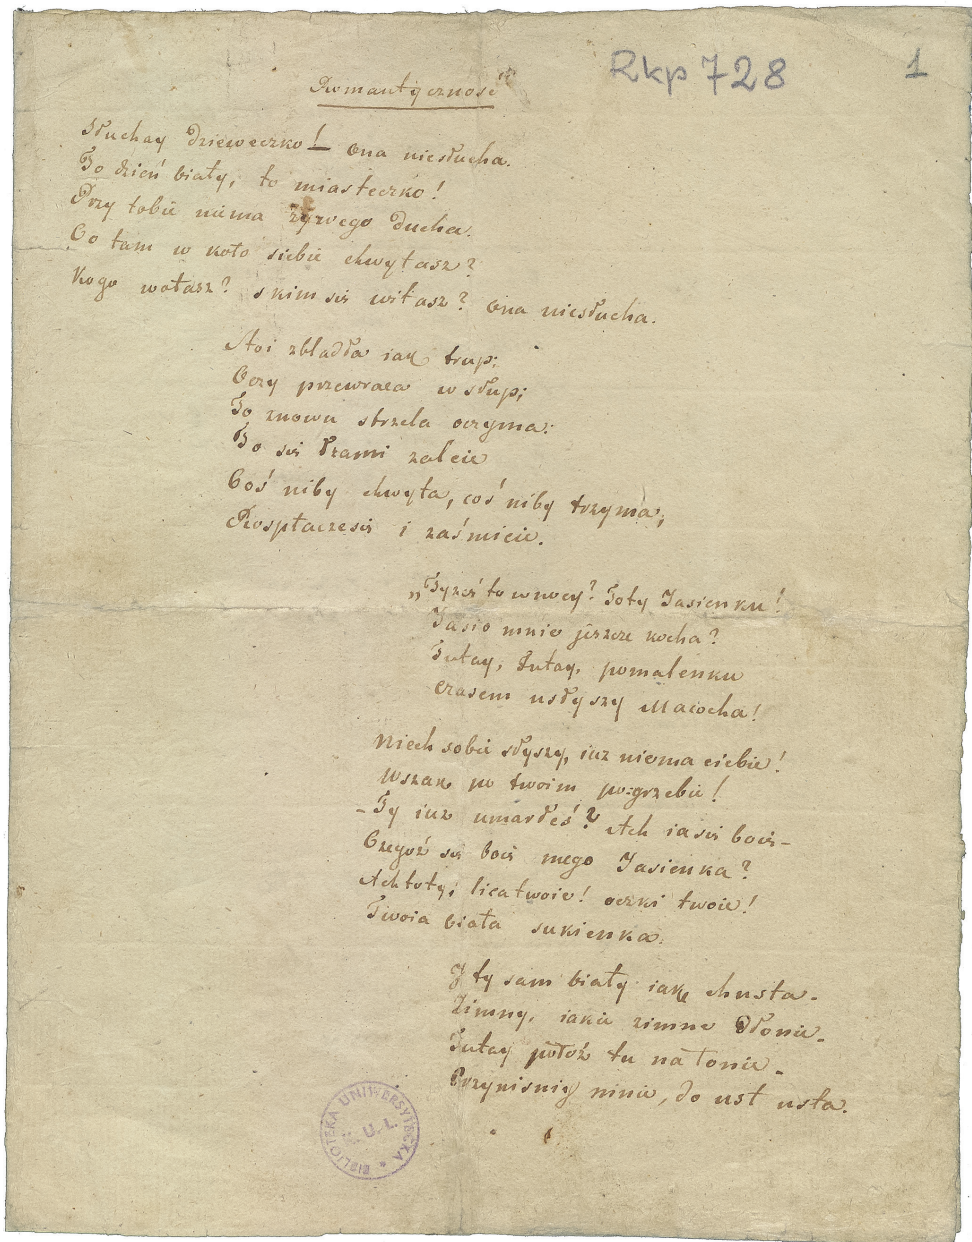 Rkp 728
1
Romantyczność
Słuchay dzieweczko! — Ona niesłucha.
To dzień biały, to miasteczko!
Przy tobie niema żywego ducha.
Co tam w koło siebie chwytasz?
Kogo wołasz? s kim sie witasz? Ona niesłucha.
Aoi zbladła iak trup;
Oczy przewraca w słup;
To znowu strzela oczyma:
To sie łzami zaleie
Coś niby chwyta, coś niby trzyma;
Rospłaczesie i zaśmieie.
„Tyześ to w nocy? Toty Jasienku!
Jasio mnie jeszcze kocha?
Tutay, tutay, pomalenku
Czasem usłyszy Macocha!
Niech sobie słyszy, iuz niema ciebie!
Wszak po twoim pogrzebie!
– Ty iuz umarłeś? Ach ia sie boie –
Czegoż sie boie mego Jasienka?
Ach toty; lica twoie! oczki twoie!
Twoia biała sukienka.
I ty sam biały iak chusta.
Zimny, iakie zimne dłonie.
Tutay połoź tu na łonie.
Przyciśniy mnie, do ust usta.
BIBLIOTEKA UNIWERSYTECKA
K.U.L.